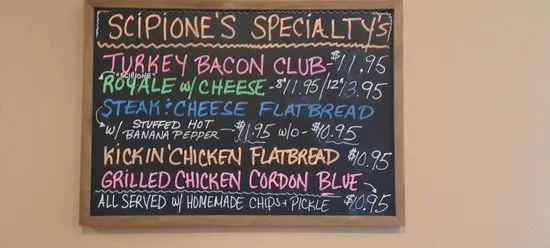 SCIPIONE'S SPECIALTY'S
TURKEY BACON CLUB - $11.95
"SCIPIONE"
ROYALE W/ CHEESE - 8" $11.95 / 12" 13.95
STEAK & CHEESE FLATBREAD
W/ STUFFED HOT BANANA PEPPER - $11.95 W/O - $10.95
KICKIN' CHICKEN FLATBREAD $10.95
GRILLED CHICKEN CORDON BLUE
ALL SERVED W/ HOMEMADE CHIPS + PICKLE $10.95